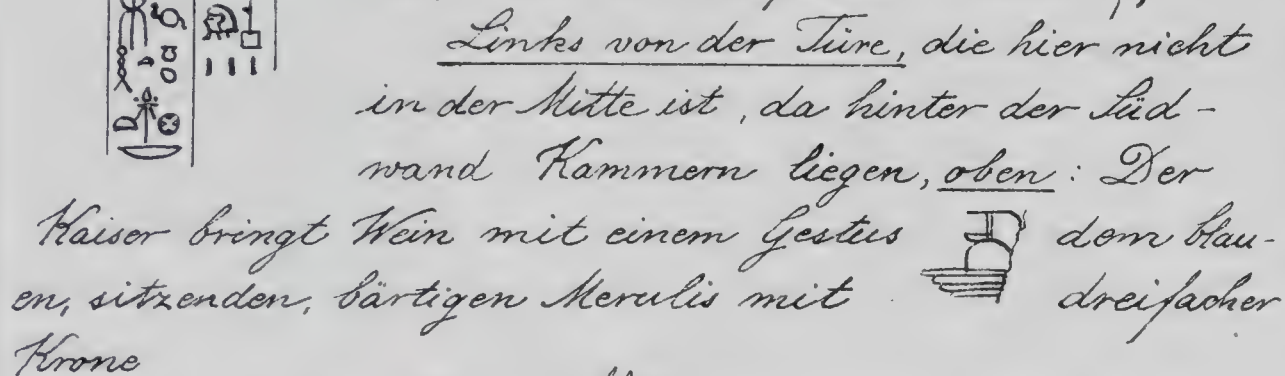 Links von der Türe, die hier nicht
in der Mitte ist, da hinter der Süd-
wand Kammern liegen, oben: Der
Kaiser bringt Wein mit einem Gestus dem blau-
en, sitzenden, bärtigen Merulis mit dreifacher
Krone